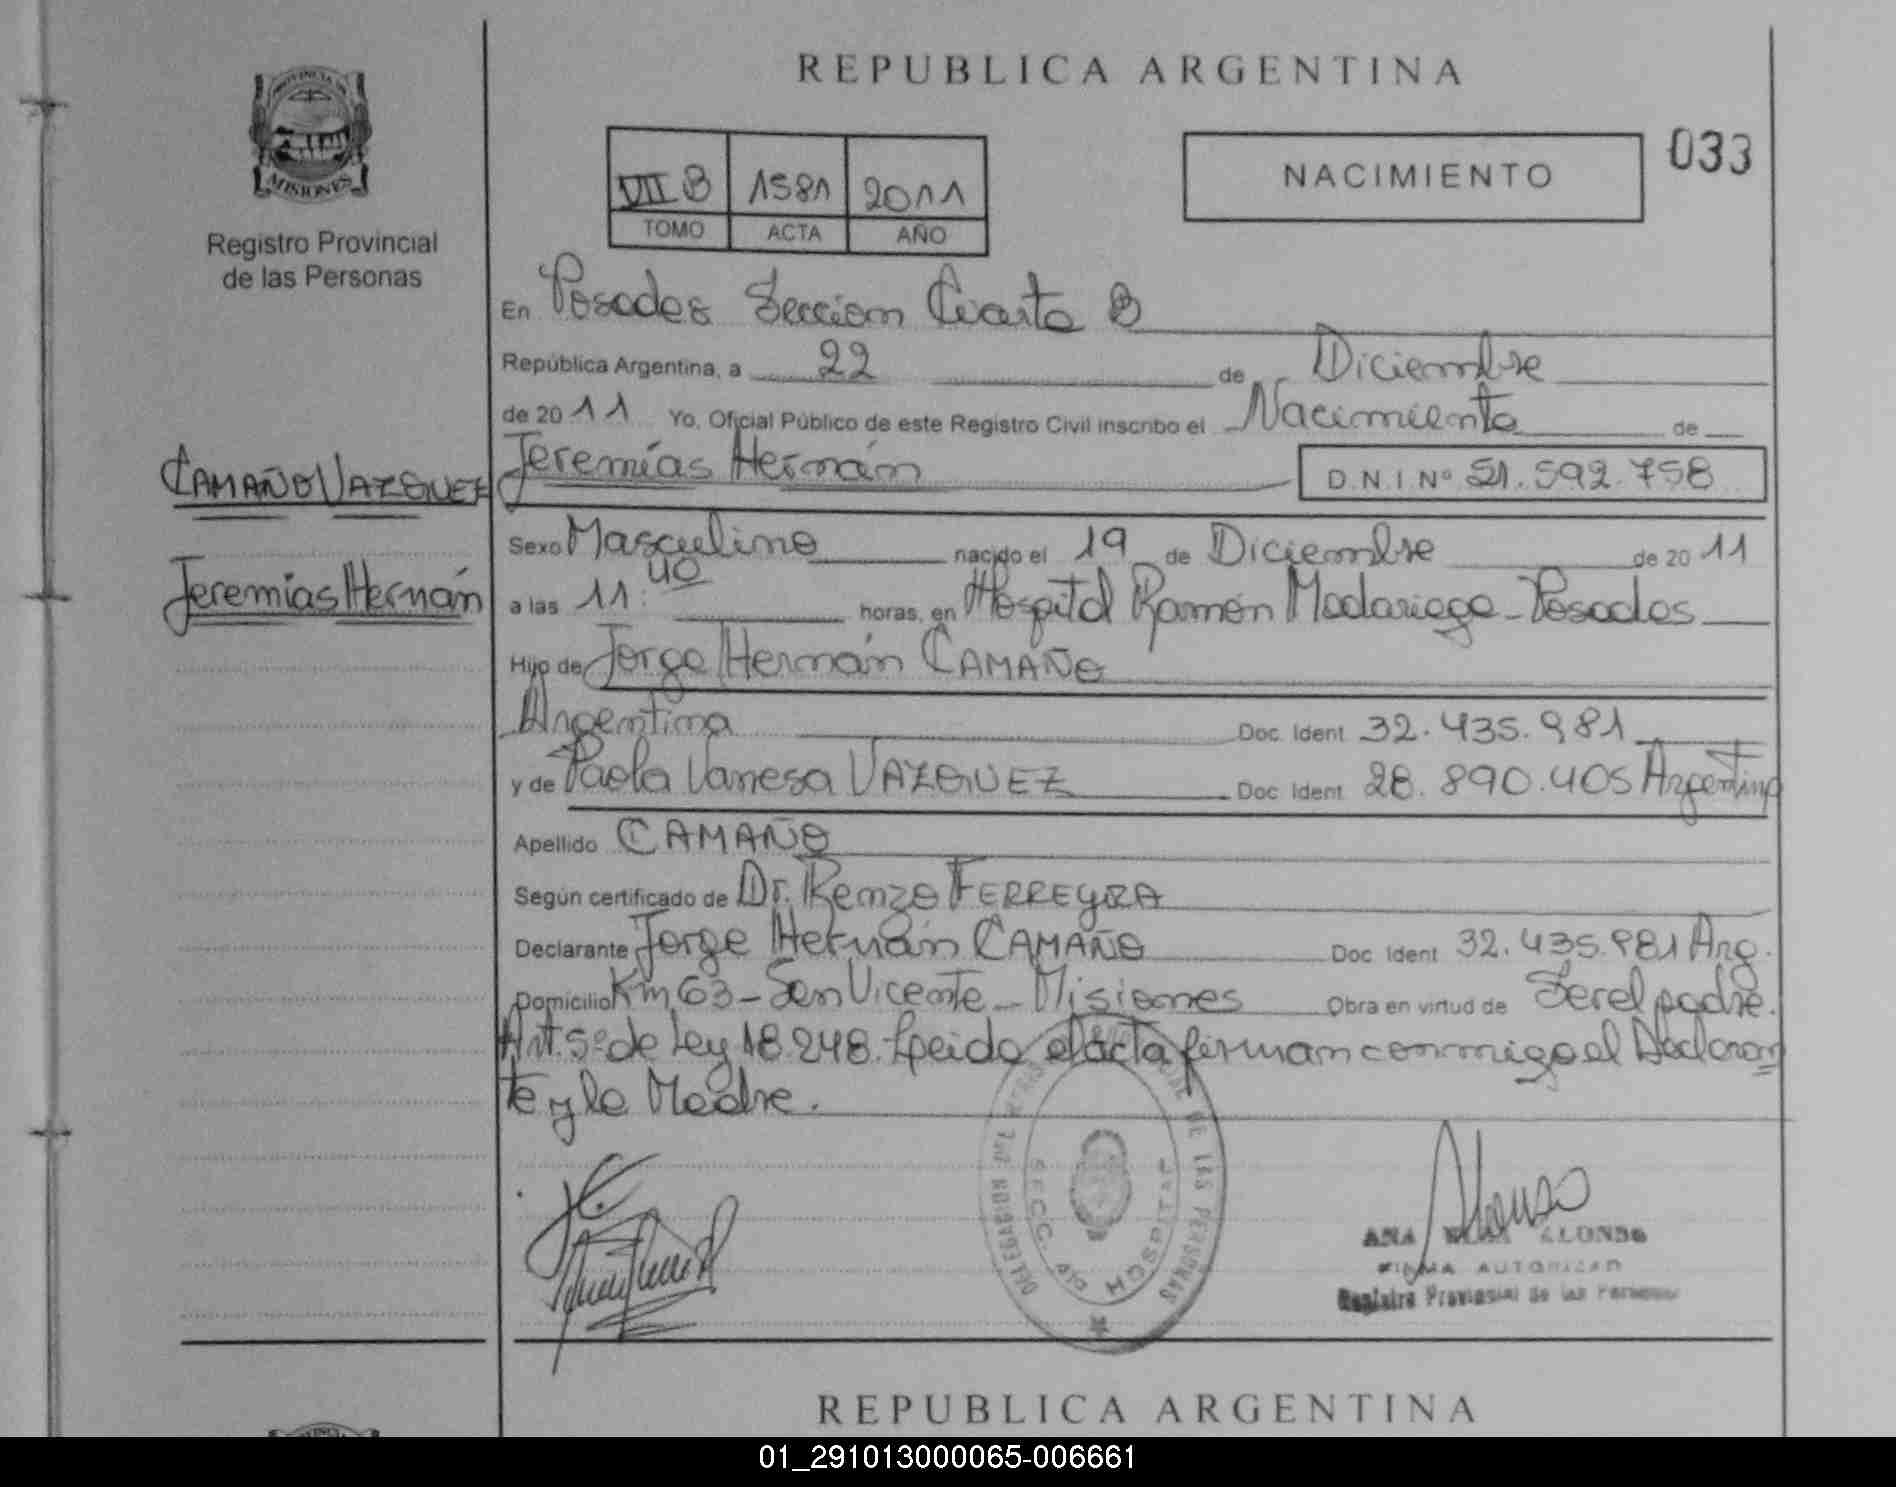 REPUBLICA ARGENTINA
PROVINCIA DE
MISIONES
Registro Provincial
de las Personas
VII B 1581 2011
TOMO ACTA AÑO
NACIMIENTO
033
En Posadas Sección Cuarta B
República Argentina, a 22 de Diciembre
de 2011 Yo, Oficial Público de este Registro Civil inscribo el Nacimiento de
CAMAÑO VAZQUEZ
Jeremías Hernán
Jeremías Hernán D.N.I Nº 51.592.758
Sexo Masculino nacido el 19 de Diciembre de 2011
a las 11:40 horas, en Hospital Ramón Madariaga - Posadas
Hijo de Jorge Hernán CAMAÑO
Argentina Doc. Ident 32.435.981
y de Paola Vanesa VAZQUEZ Doc Ident 28.890.405 Argentina
Apellido CAMAÑO
Según certificado de Dr. Renzo FERREYRA
Declarante Jorge Hernán CAMAÑO Doc Ident 32.435.981 Arg.
Domicilio Km 63 - San Vicente - Misiones Obra en virtud de Ser el padre.
Art. 5º de Ley 18.248. Leida el acta firman conmigo el Declaran
te y la Madre.
DE LAS PERSONAS
DELEGACION
SECC. 4ta HOSPITAL
Alonso
ANA ALONSO
FIRMA AUTORIZAD
Registro Provincial de las Personas
REPUBLICA ARGENTINA
01_291013000065-006661